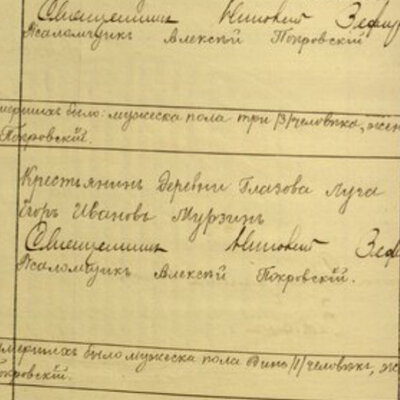 Священникъ Николай Зефир
Псаломщикъ Алексѣй Покровскiй
мершихъ было: мужеска пола три /3/ человѣка, жен
Покровскiй.
Крестьянинъ деревни Глазова Луга
Егоръ Ивановъ Мурзинъ
Священникъ Николай Зеф
Псаломщикъ Алексѣй Покровскiй.
мершихъ было мужеска пола одинъ /1/ человѣкъ, же
окровскiй.